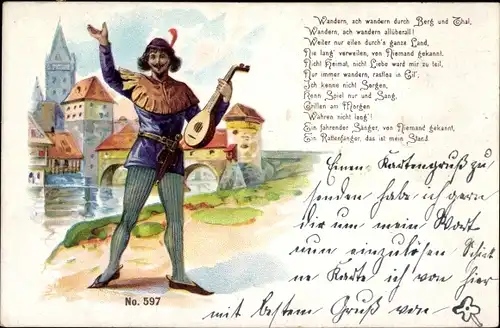 Wandern, ach wandern durch Berg und Thal,
Wandern, ach wandern allüberall!
Weiler nur eilen durch's ganze Land,
Nie lang' verweilen, von Niemand gekannt,
Nicht Heimat, nicht Liebe ward mir zu teil,
Nur immer wandern, rastlos in Eil'.
Ich kenne nicht Sorgen,
Kenn Spiel nur und Sang,
Grillen am Morgen
Währen nicht lang'!
Ein fahrender Sänger, von Niemand gekannt,
Ein Rattenfänger, das ist mein Stand.
Einen Kartengruß zu
senden habe ich gern
dir um mein Wort
nun einzulösen
ne Karte ich von hier
mit bestem Gruß von
No. 597